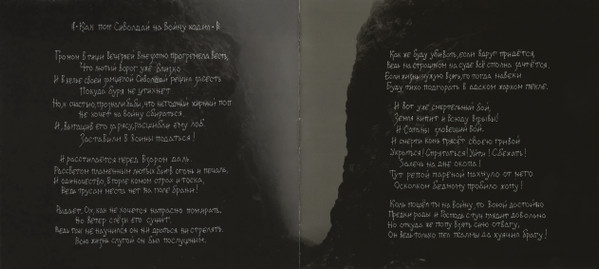 «Как поп Сиволдай на войну ходил»
Громом в тиши вечерней внезапно прогремела весть,
Что лютый ворог уже близко
И в келье своей замшелой Сиволдай решил засесть
Покуда буря не утихнет.
Но, к счастью, прознали бабы, что негодный жирный поп
Не хочет на войну сбираться,
И, вытащив его за рясу, расшибли ему лоб.
Заставили в воины податься!
И расстилается перед взором даль.
Рассветом пламенным лютых битв огонь и печаль,
И одиночество, в горле комом страх и тоска,
Ведь трусам места нет на поле брани!
Рыдает. Ох, как не хочется напрасно помирать.
Но ветер слёзы его сушит.
Ведь так не научился он ни драться ни стрелять.
Всю жизнь слугой он был послушным.
Как же буду убивать, если вдруг придётся
Ведь на страшном на суде всё сполна зачтётся.
Если жизнь чужую взять, то тогда навеки
Буду тихо подгорать в адском жарком пекле.
И вот уже смертельный бой,
Земля кипит и всюду взрывы!
И Сатаны зловещий вой.
И смерти конь трясёт своею гривой
Укрыться! Спрятаться! Уйти! Сбежать!
Залечь на дне окопа!
Тут репой пареной пахнуло от него
Осколком бедному пробило жопу!
Коль пошёл ты на войну, то воюй достойно
Предки рады и Господь с туч глядит довольно
Но откуда же попу взять сию отвагу,
Он ведь только пел псалмы да кушал брагу!